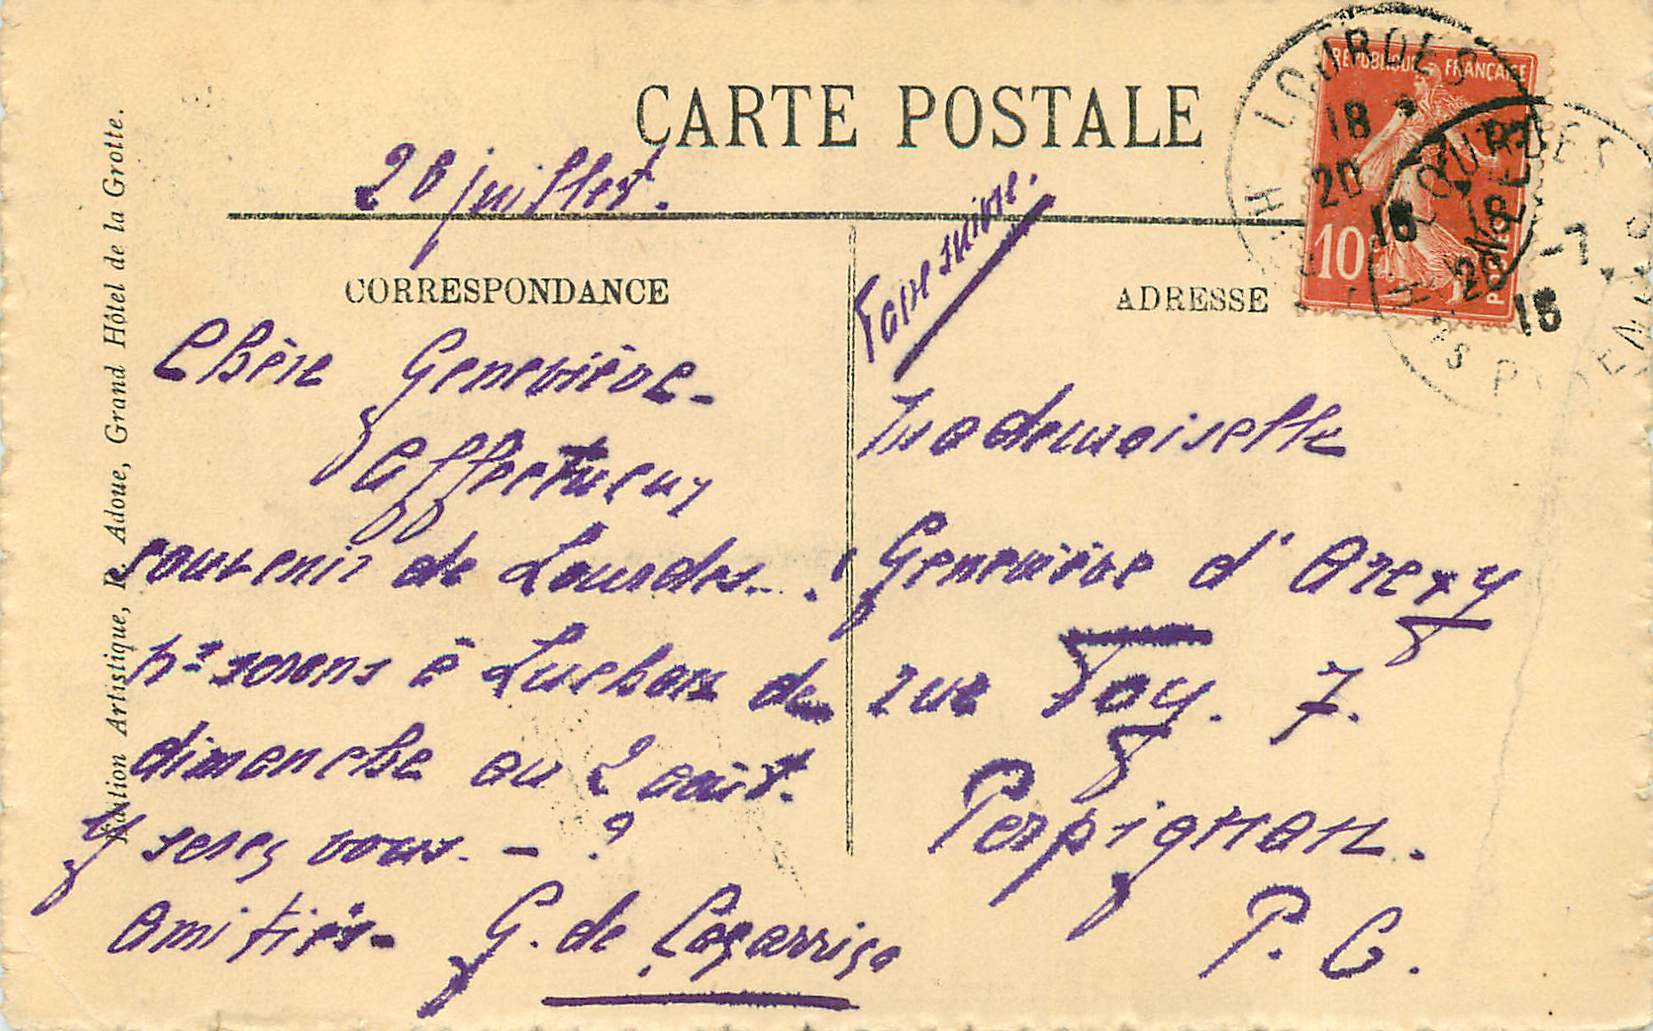 CARTE POSTALE
20 juillet.
CORRESPONDANCE
Chère Geneviève -
Affectueux
souvenir de Lourdes - !
ns serons à Luchon de
dimanche au 2 août.
Y serez vous. - ?
Amitiés - G. de Lagarriga
Faire suivre.
ADRESSE
Mademoiselle
Geneviève d'Arexy
rue Foy. 7.
Perpignan.
P. O.
REPUBLIQUE FRANÇAISE
10
POSTES
LOURDES
18
20
LOURDES
18
20 -7
15
Edition Artistique, R. Adoue, Grand Hôtel de la Grotte.